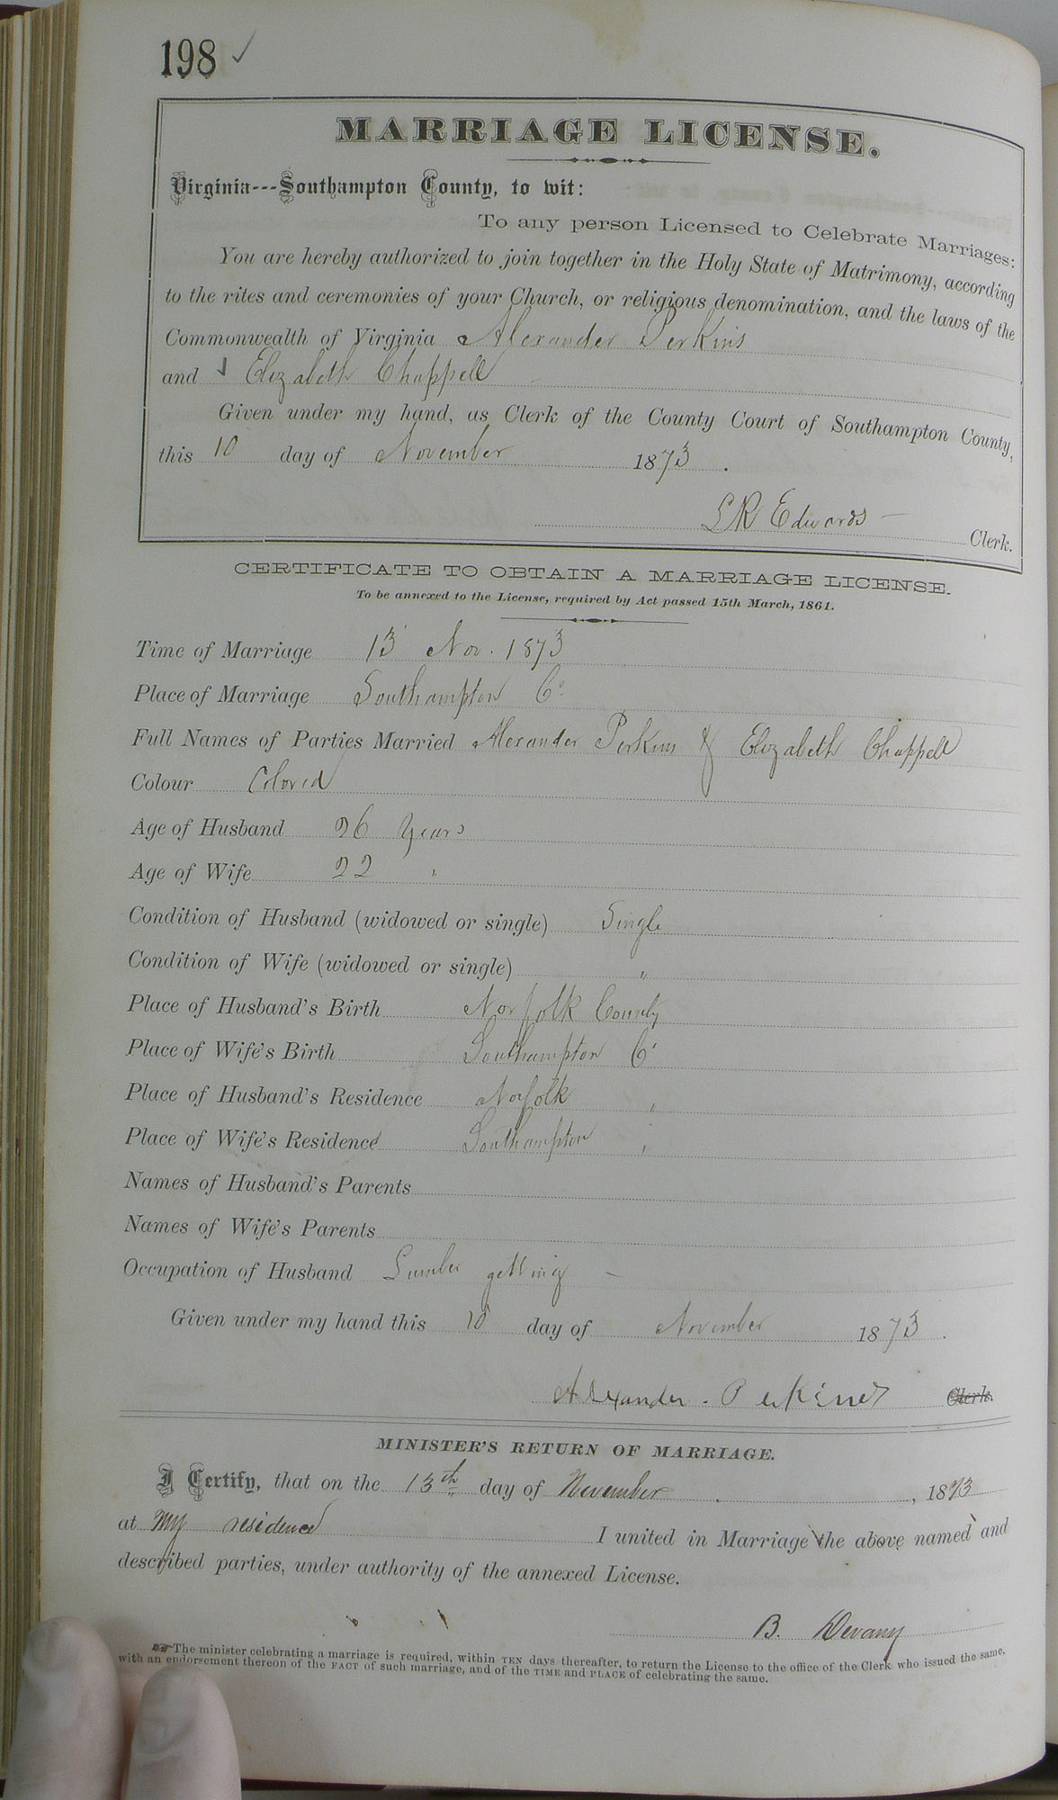 198 ✓
MARRIAGE LICENSE.
Virginia---Southampton County, to wit:
To any person Licensed to Celebrate Marriages:
You are hereby authorized to join together in the Holy State of Matrimony, according
to the rites and ceremonies of your Church, or religious denomination, and the laws of the
Commonwealth of Virginia Alexander Perkins
and Elizabeth Chappell
Given under my hand, as Clerk of the County Court of Southampton County,
this 10 day of November 1873.
L R Edwards Clerk.
CERTIFICATE TO OBTAIN A MARRIAGE LICENSE.
To be annexed to the License, required by Act passed 15th March, 1861.
Time of Marriage 13 Nov. 1873
Place of Marriage Southampton Co
Full Names of Parties Married Alexander Perkins & Elizabeth Chappell
Colour Colored
Age of Husband 26 Years
Age of Wife 22 "
Condition of Husband (widowed or single) Single
Condition of Wife (widowed or single) "
Place of Husband's Birth Norfolk County
Place of Wife's Birth Southampton Co
Place of Husband's Residence Norfolk "
Place of Wife's Residence Southampton "
Names of Husband's Parents
Names of Wife's Parents
Occupation of Husband Lumber getting
Given under my hand this 10 day of November 1873.
Alexander. Perkines Clerk.
MINISTER'S RETURN OF MARRIAGE.
I Certify, that on the 13th day of November, 1873
at My residence I united in Marriage the above named and
described parties, under authority of the annexed License.
B. Devany
The minister celebrating a marriage is required, within TEN days thereafter, to return the License to the office of the Clerk who issued the same,
with an endorsement thereon of the FACT of such marriage, and of the TIME and PLACE of celebrating the same.